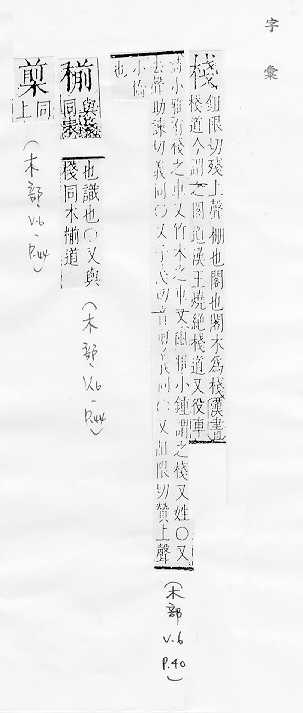 字彙
棧
鉏限切殘上聲棚也閣也閣木為棧漢書
棧道今謂之閣道漢王燒絕棧道又役車
詩小雅有棧之車又竹木之車又爾雅小鍾謂之棧又姓〇又
去聲助諫切義同〇又
義同〇又鉏限切贊上聲
小橋
也
(木部 V.6 P.40)
椾
與
同
也識也〇又與
棧同木椾道
(木部 V.6 - P.44)
同
上
(木部 V.6 - P.44)